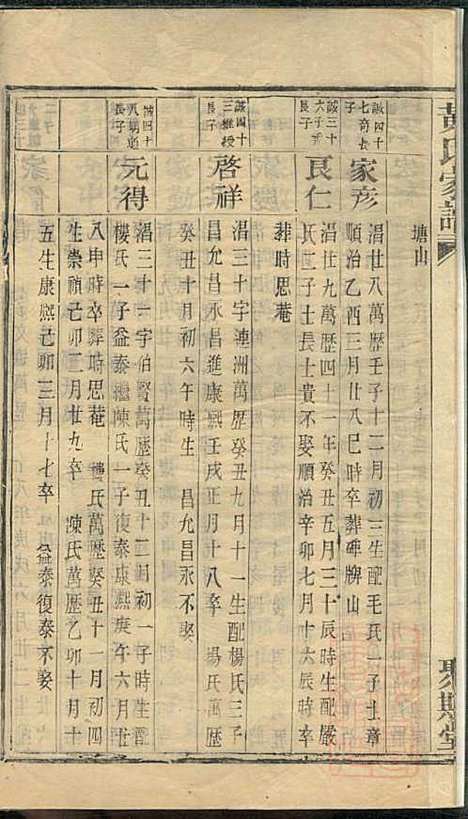 黃氏家譜
聚順堂
塘山
誠四十
七奇長
子
家彥
滔廿八萬歷壬子十二月初三生配毛氏一子士章
順治乙酉三月廿八巳時卒葬碑牌山
誠四十
六子
長子
良仁
滔廿九萬歷四十一年癸丑五月三十辰時生配嚴
氏二子士長士貴不娶順治辛卯七月廿六辰時卒
葬時思菴
誠四十
三維授
長子
啓祥
滔三十字連洲萬歷癸丑九月十一生配楊氏三子
昌允昌永昌進康熙壬戌正月十八卒 楊氏萬歷
癸丑十月初六午時生 昌允昌永不娶
誠四十
八朝順
長子
元得
滔三十一字伯賢萬歷癸丑十二月初一子時生配
樓氏一子益泰繼陳氏一子復泰康熙庚午六月廿
八申時卒葬時思菴 樓氏萬歷癸丑十一月初四
生崇禎己卯二月廿九卒 陳氏萬歷乙卯十月十
五生康熙己卯三月十七卒 益泰復泰不娶